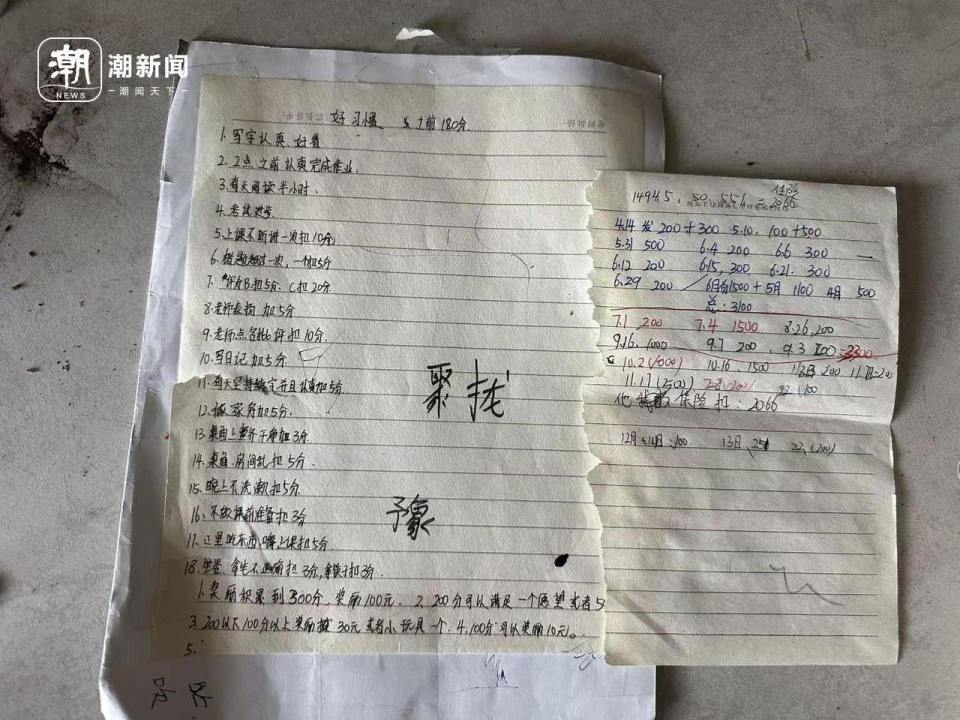 潮 潮新闻
NEWS 潮闻天下
好习惯 180分
1. 写字认真、好看
2. 2点之前认真完成作业.
3. 每天阅读半小时.
4. 考试进步
5. 上课不听讲一次扣10分
6. 错题超过一次,一个扣5分
7. 评为B扣5分, C扣20分
8. 老师表扬 加5分
9. 老师点名批评扣10分.
10. 写日记加5分
11. 每天坚持练字并且认真加5分
12. 做家务加5分.
13. 桌面上整齐干净加3分
14. 桌面、房间乱扣5分.
15. 晚上不洗漱扣5分
16. 不做课前准备扣3分
17. 吃东西 上课扣5分.
18. 扣3分, 扣3分.
1. 奖励积累到300分, 奖励100元. 2. 200分可以满足一个愿望或者
3. 200以下100分以上奖励 30元或者小玩具一个. 4. 100分可以奖励10元。
5.
聚拢
豫
保险
14945. 50. 551 = 2066
4.14 发 200 + 300 5.10. 100 + 500
5.31 500 6.4 200 6.6 300
6.12 200 6.15, 300 6.21. 300
6.29 200 6月份1500 + 5月 1100 4月 500
总: 3100
7.1 200 7.4 1500 8.26, 200
9.16. 1000 9.7 200 3300
10.2 (1000) 10.16 1500 200
11.17 (500)
他 保险扣: 2066
12月 14日 100 13日 22 (200)